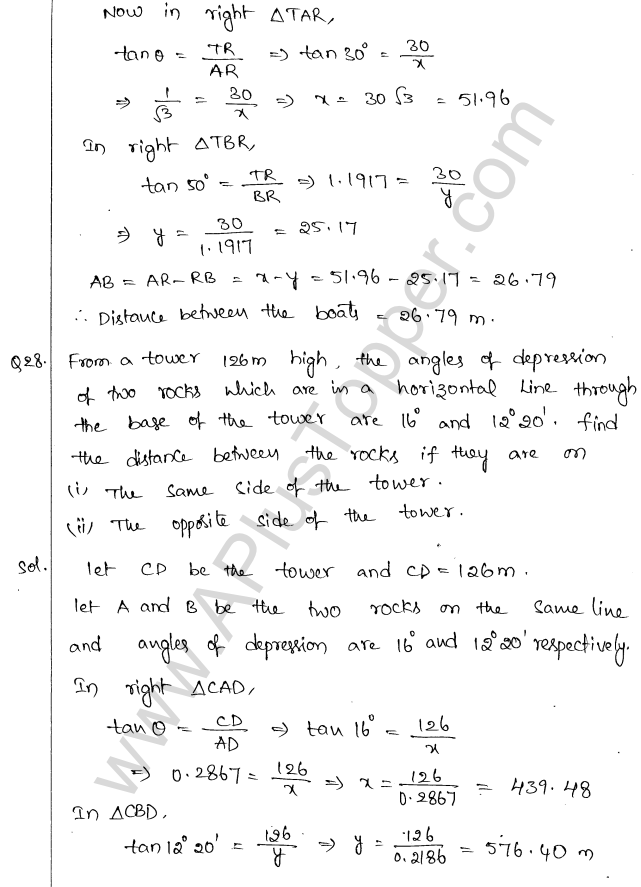 Now in right △TAR,
tan θ = TR/AR ⇒ tan 30° = 30/x
⇒ 1/√3 = 30/x ⇒ x = 30√3 = 51.96
In right △TBR,
tan 50° = TR/BR ⇒ 1.1917 = 30/y
⇒ y = 30/1.1917 = 25.17
AB = AR – RB = x – y = 51.96 – 25.17 = 26.79
∴ Distance between the boats = 26.79 m.
Q28. From a tower 126m high, the angles of depression
of two rocks which are in a horizontal line through
the base of the tower are 16° and 12° 20'. find
the distance between the rocks if they are on
(i) The same side of the tower.
(ii) The opposite side of the tower.
Sol. let CD be the tower and CD = 126 m.
let A and B be the two rocks on the same line
and angles of depression are 16° and 12° 20' respectively.
In right △CAD,
tan θ = CD/AD ⇒ tan 16° = 126/x
⇒ 0.2867 = 126/x ⇒ x = 126/0.2867 = 439.48
In △CBD,
tan 12° 20' = 126/y ⇒ y = 126/0.2186 = 576.40 m
www.APlusTopper.com